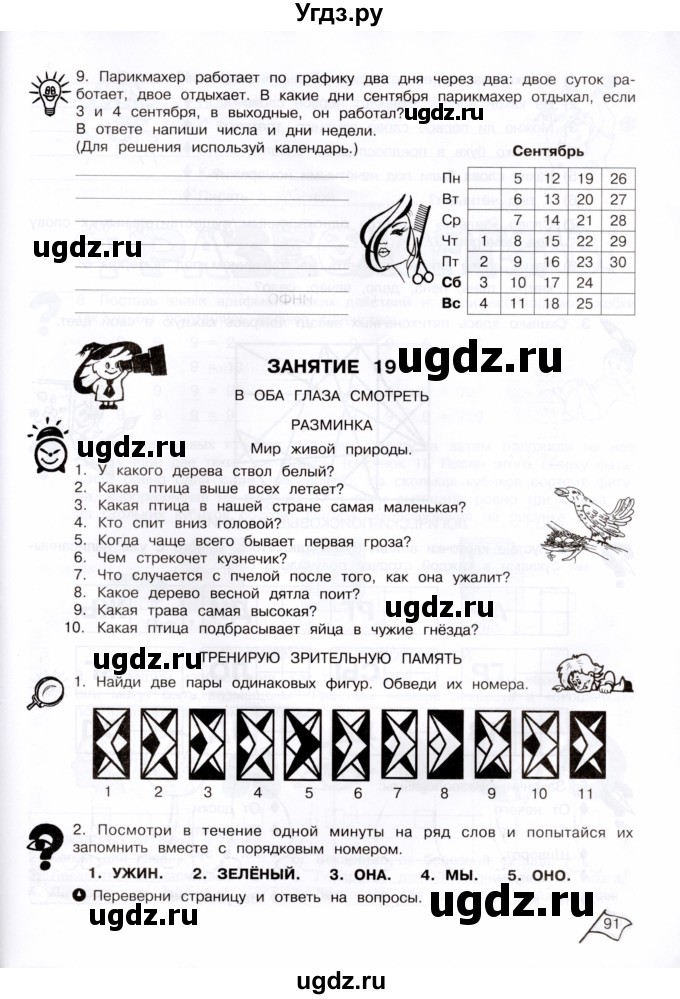 Угдз.ру
9. Парикмахер работает по графику два дня через два: двое суток ра-
ботает, двое отдыхает. В какие дни сентября парикмахер отдыхал, если
3 и 4 сентября, в выходные, он работал?
В ответе напиши числа и дни недели.
(Для решения используй календарь.)
Сентябрь
Пн 5 12 19 26
Вт 6 13 20 27
Ср 7 14 21 28
Чт 1 8 15 22 29
Пт 2 9 16 23 30
Сб 3 10 17 24
Вс 4 11 18 25
ugdz.ru
ugdz.ru
ugdz.ru
ЗАНЯТИЕ 19
В ОБА ГЛАЗА СМОТРЕТЬ
РАЗМИНКА
ugdz.ru
Мир живой природы.
1. У какого дерева ствол белый?
2. Какая птица выше всех летает?
3. Какая птица в нашей стране самая маленькая?
4. Кто спит вниз головой?
5. Когда чаще всего бывает первая гроза?
6. Чем стрекочет кузнечик?
7. Что случается с пчелой после того, как она ужалит?
8. Какое дерево весной дятла поит?
9. Какая трава самая высокая?
10. Какая птица подбрасывает яйца в чужие гнёзда?
ugdz.ru
ugdz.ru
ТРЕНИРУЮ ЗРИТЕЛЬНУЮ ПАМЯТЬ
1. Найди две пары одинаковых фигур. Обведи их номера.
1 2 3 4 5 6 7 8 9 10 11
2. Посмотри в течение одной минуты на ряд слов и попытайся их
запомнить вместе с порядковым номером.
1. УЖИН. 2. ЗЕЛЁНЫЙ. 3. ОНА. 4. МЫ. 5. ОНО.
Переверни страницу и ответь на вопросы.
ugdz.ru
ugdz.ru
91
ugdz.ru